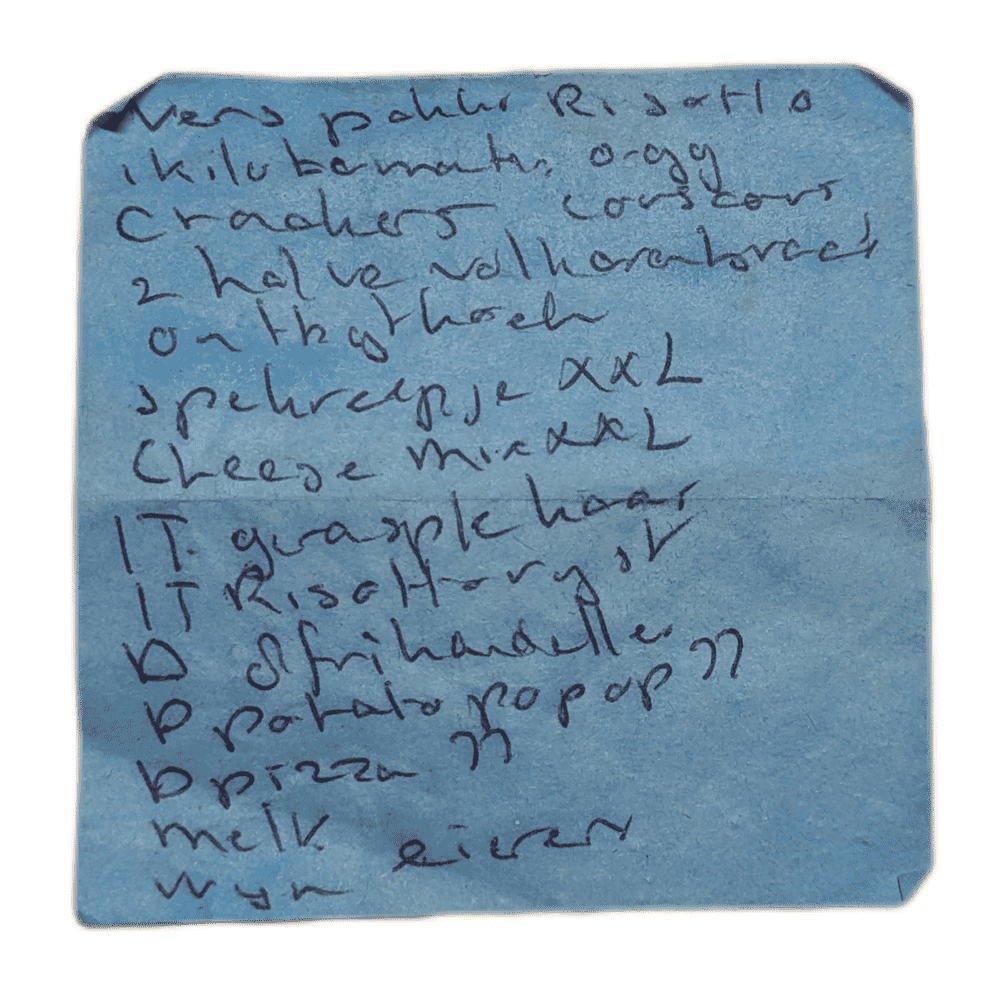 Vers pakke Risotto
1 kilo tomate. 0-99
Crackers couscous
2 halve volkorenbrood
ontbytkoek
spekreepje XXL
Cheese mix XXL
IT. geraspte kaas
IT Risottoryst
D 8 frikandelle
D potato popop ??
D pizza ??
melk eieren
wyn